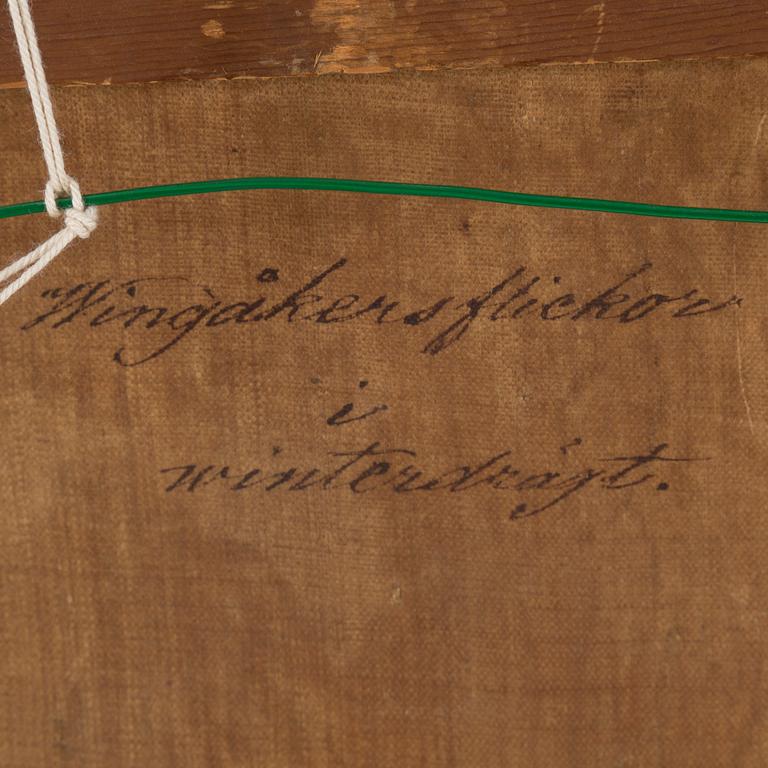 Wingåkersflickor
i
winterdrägt.